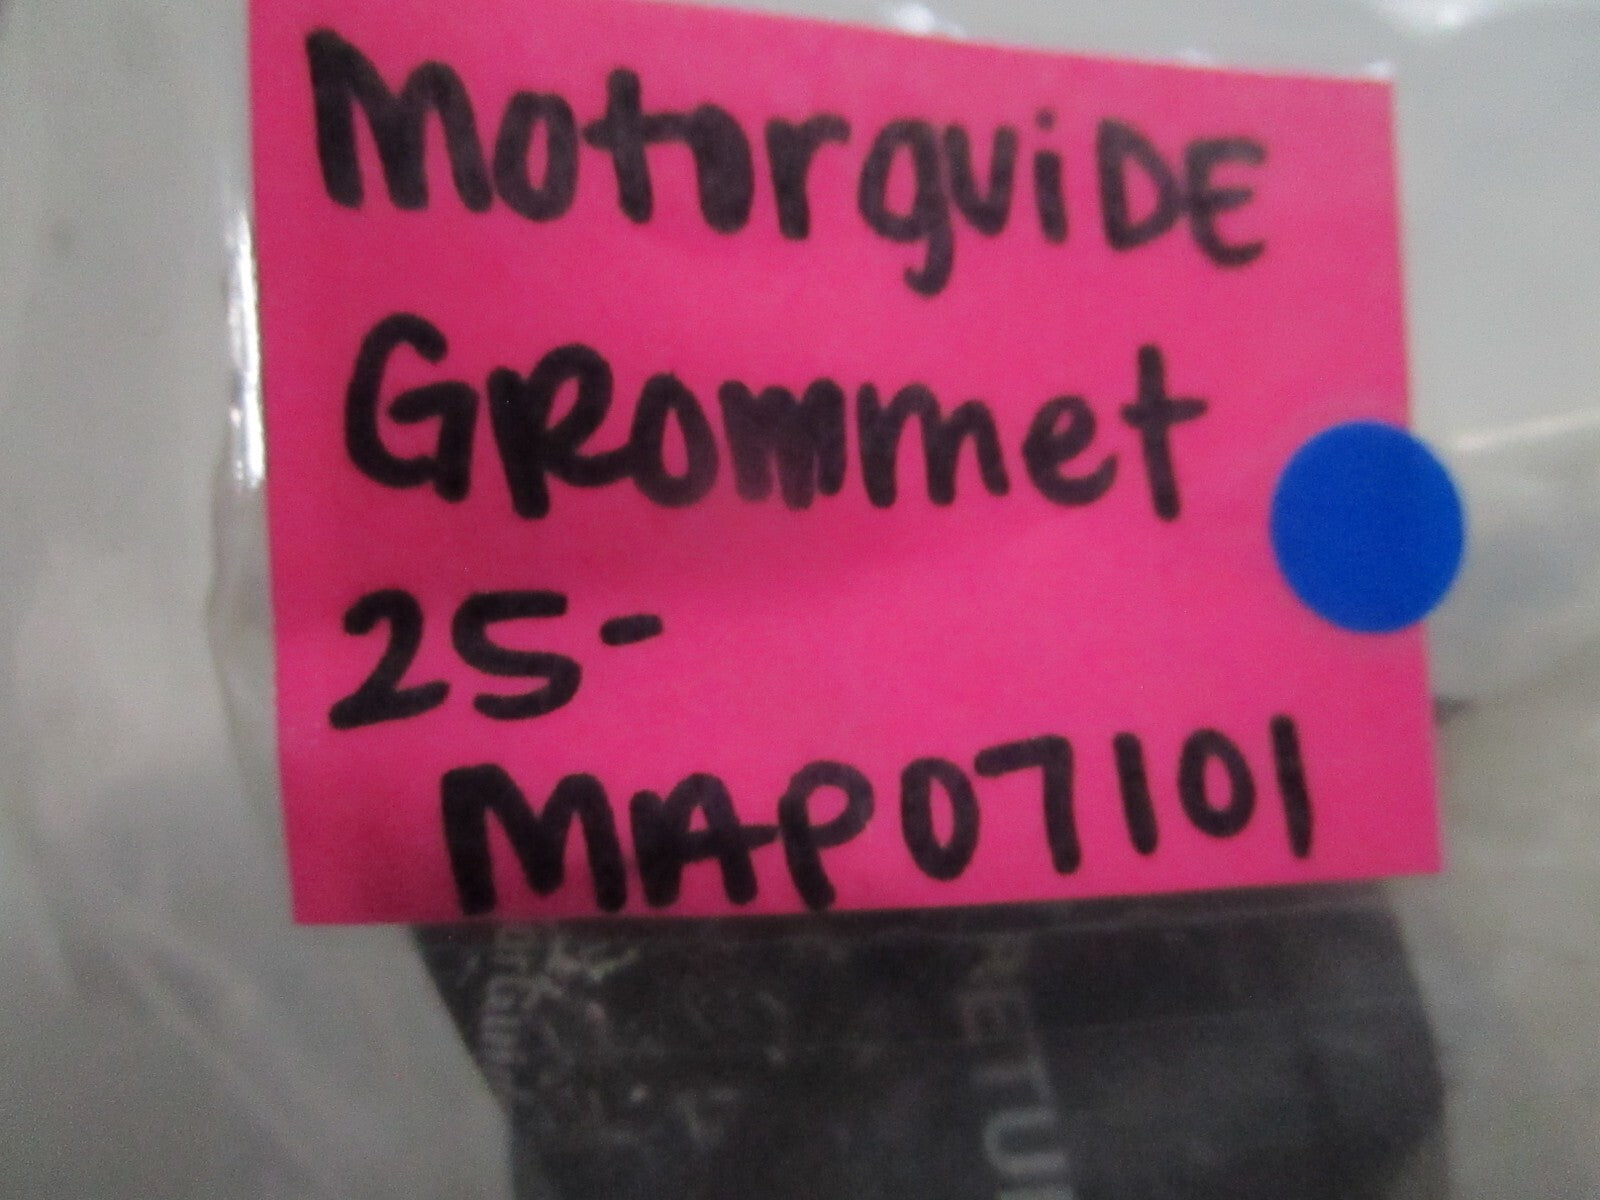 MotorguiDE
GRommet
25-
MAP07101